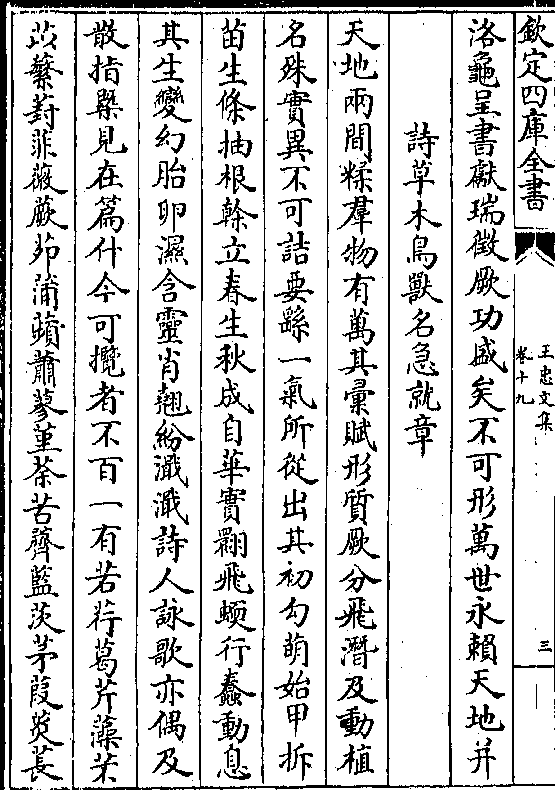 欽定四庫全書
王忠文集
卷十九
三
洛龜呈書獻瑞徵厥功盛矣不可形萬世永賴天地并
詩草木鳥獸名急就章
天地兩間糅羣物有萬其彚賦形質厥分飛潛及動植
名殊實異不可詰要繇一氣所從出其初勾萌始甲拆
苗生條抽根榦立春生秋成自華實翾飛蝡行蠢動息
其生變幻胎卵濕含靈肖翹紛濈濈詩人詠歌亦偶及
散指槩見在篇什今可攬者不百一有若荇葛芹藻芣
苡蘩葑菲薇蕨茆蒲蘋蕭蓼堇荼苦薺藍茨茅葭菼萇